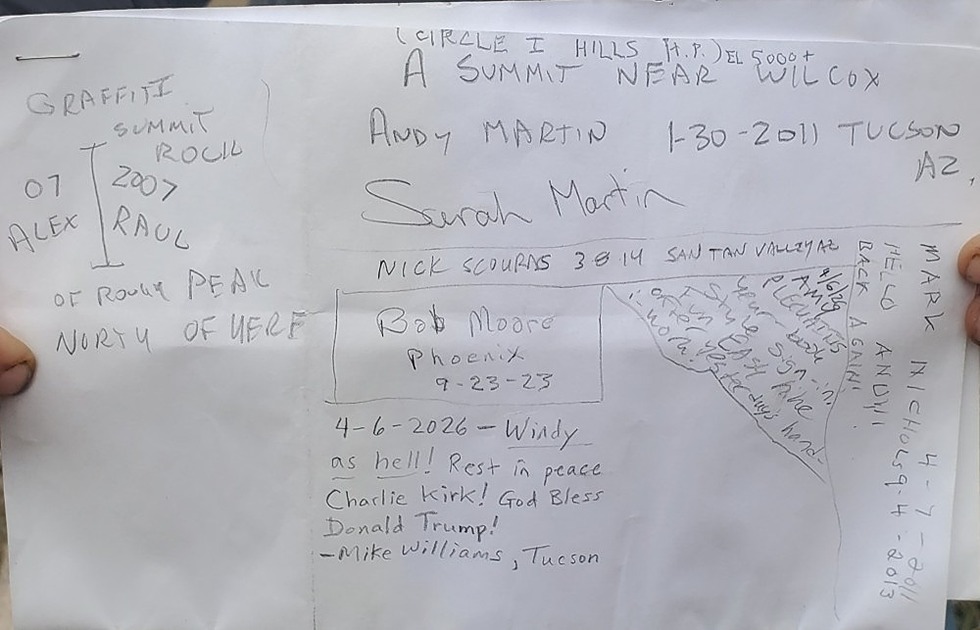 (CIRCLE I HILLS H.P.) EL 5000+
A SUMMIT NEAR WILCOX
ANDY MARTIN 1-30-2011 TUCSON
AZ,
Sarah Martin
GRAFFITI
SUMMIT
ROCK
07 2007
ALEX RAUL
OF ROCKY PEAK
NORTH OF HERE
NICK SCOURAS 3 8 14 SAN TAN VALLEY AZ
Bob Moore
Phoenix
9-23-23
4-6-2026 - Windy
as hell! Rest in peace
Charlie Kirk! God Bless
Donald Trump!
-Mike Williams, Tucson
AMY
your book
sign-in!
hike
yesterday's hard-
MARK NICHOLS 4-7-2011
HELO ANDY! 9-4-2013
BACK AGAIN!